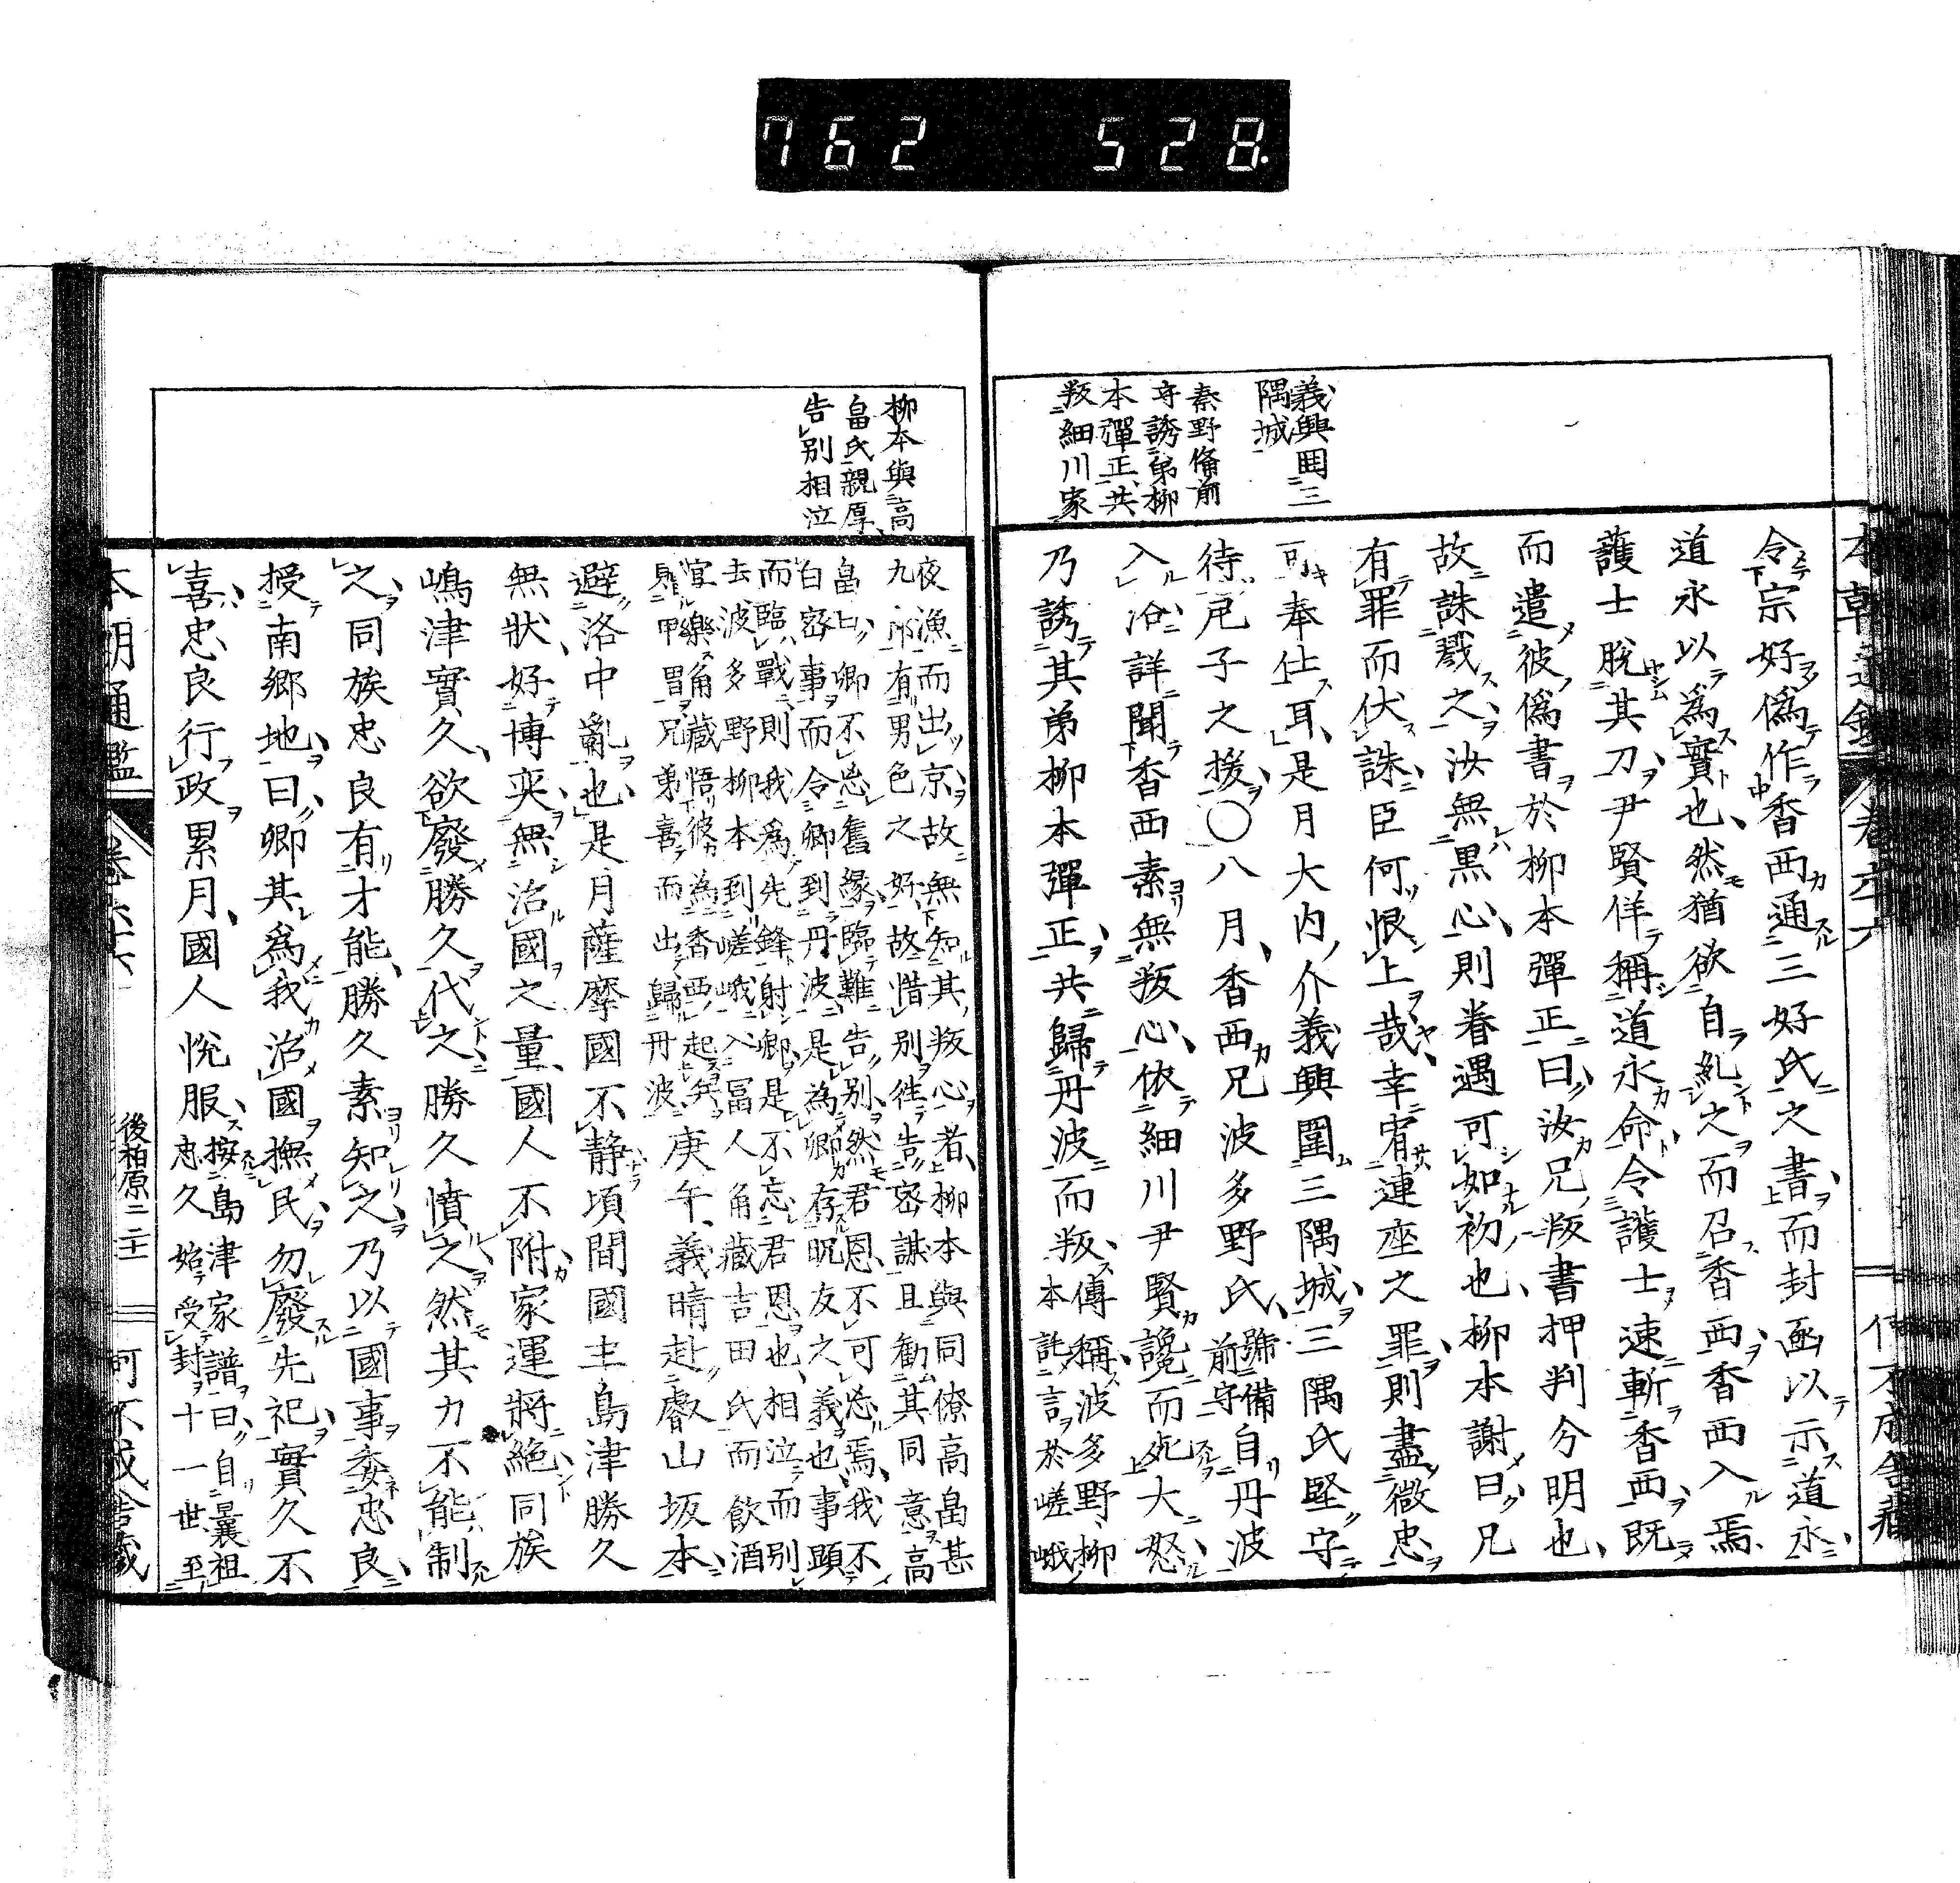 762 528.
義興圍三
隅城
秦野備前
守誘弟柳
本彈正共
叛細川家
令宗好僞作香西通三好氏之書而封函以示道永
道永以爲實也然猶欲自糺之而召香西香西入焉
護士脫其刀尹賢佯稱道永命令護士速斬香西既
而遣彼僞書於柳本彈正曰汝兄叛書押判分明也
故誅戮之汝無黑心則眷遇可如初也柳本謝曰兄
有罪而伏誅臣何恨上哉幸宥連座之罪則盡微忠
可奉仕耳是月大内介義興圍三隅城三隅氏堅守
待尼子之援〇八月香西兄波多野氏號備前守自丹波
入洛詳聞香西素無叛心依細川尹賢讒而死大怒
乃誘其弟柳本彈正共歸丹波而叛傳稱波多野柳
本託言於嵯峨
柳本與高
畠氏親厚
告別相泣
夜漁而出京故無知其叛心者柳本與同僚高畠甚
九郎有男色之好故惜別徃告密謀且勸其同意高
畠上卿不忘舊緣臨難告別然君恩不可忘焉我不
白密事而令卿到丹波是為卿存眤友之義也事顕
而臨戰則我爲先鋒射卿是不忘君恩也相泣而別
去波多野柳本到嵯峨入冨人角藏吉田氏而飲酒
宜樂角藏悟彼為香西起兵
甲冑兄弟喜而出歸丹波庚午義晴赴叡山坂本
避洛中亂也是月薩摩國不静頃間國主島津勝久
無狀好博奕無治國之量國人不附家運將絶同族
嶋津實久欲廢勝久代之勝久憤之然其力不能制
之同族忠良有才能勝久素知之乃以國事委忠良
授南郷地曰卿其爲我治國撫民勿廢先祀實久不
喜忠良行政累月國人悅服按島津家譜曰自曩祖
忠久始受封十一世至
本朝通鑑 卷六 後柏原二 二十一